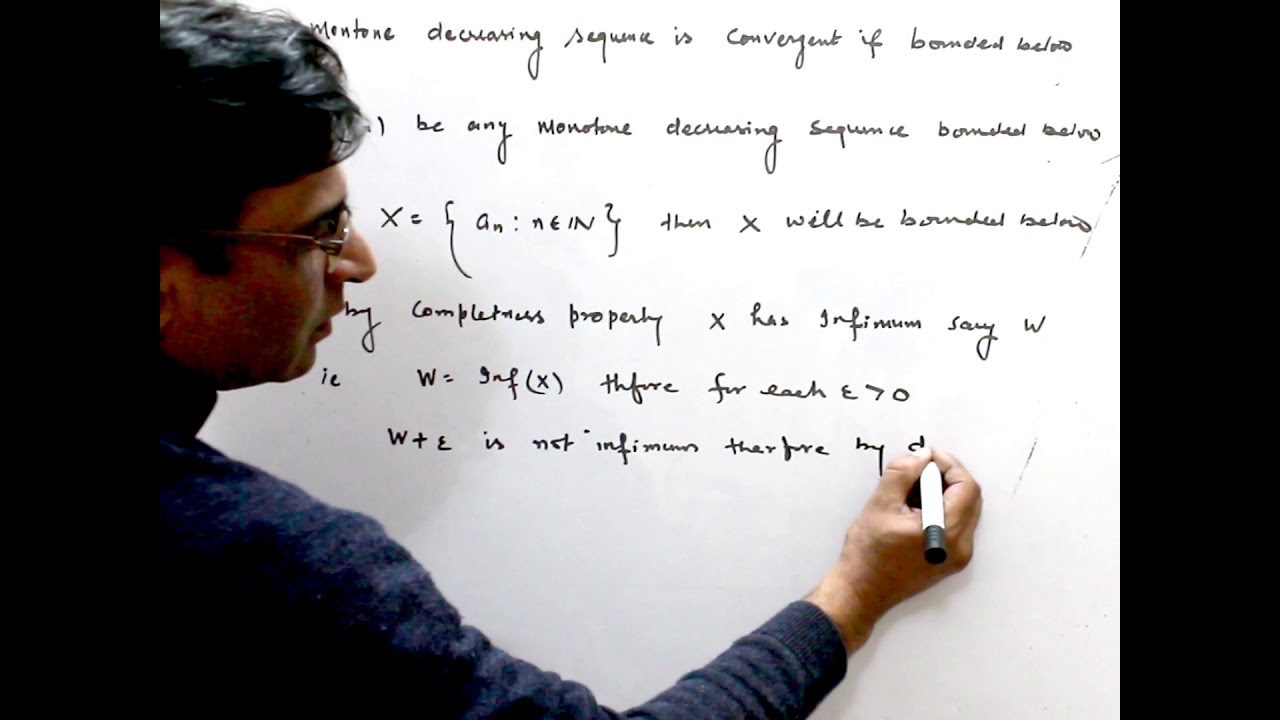 Montone decreasing sequence is convergent if bounded below
) be any Monotone decreasing sequence bounded below
X = { an : n ∈ IN } then X will be bounded below
by completness property X has Infimum say W
ie W = Inf(X) thfore for each ε > 0
W + ε is not infimum therfore by d